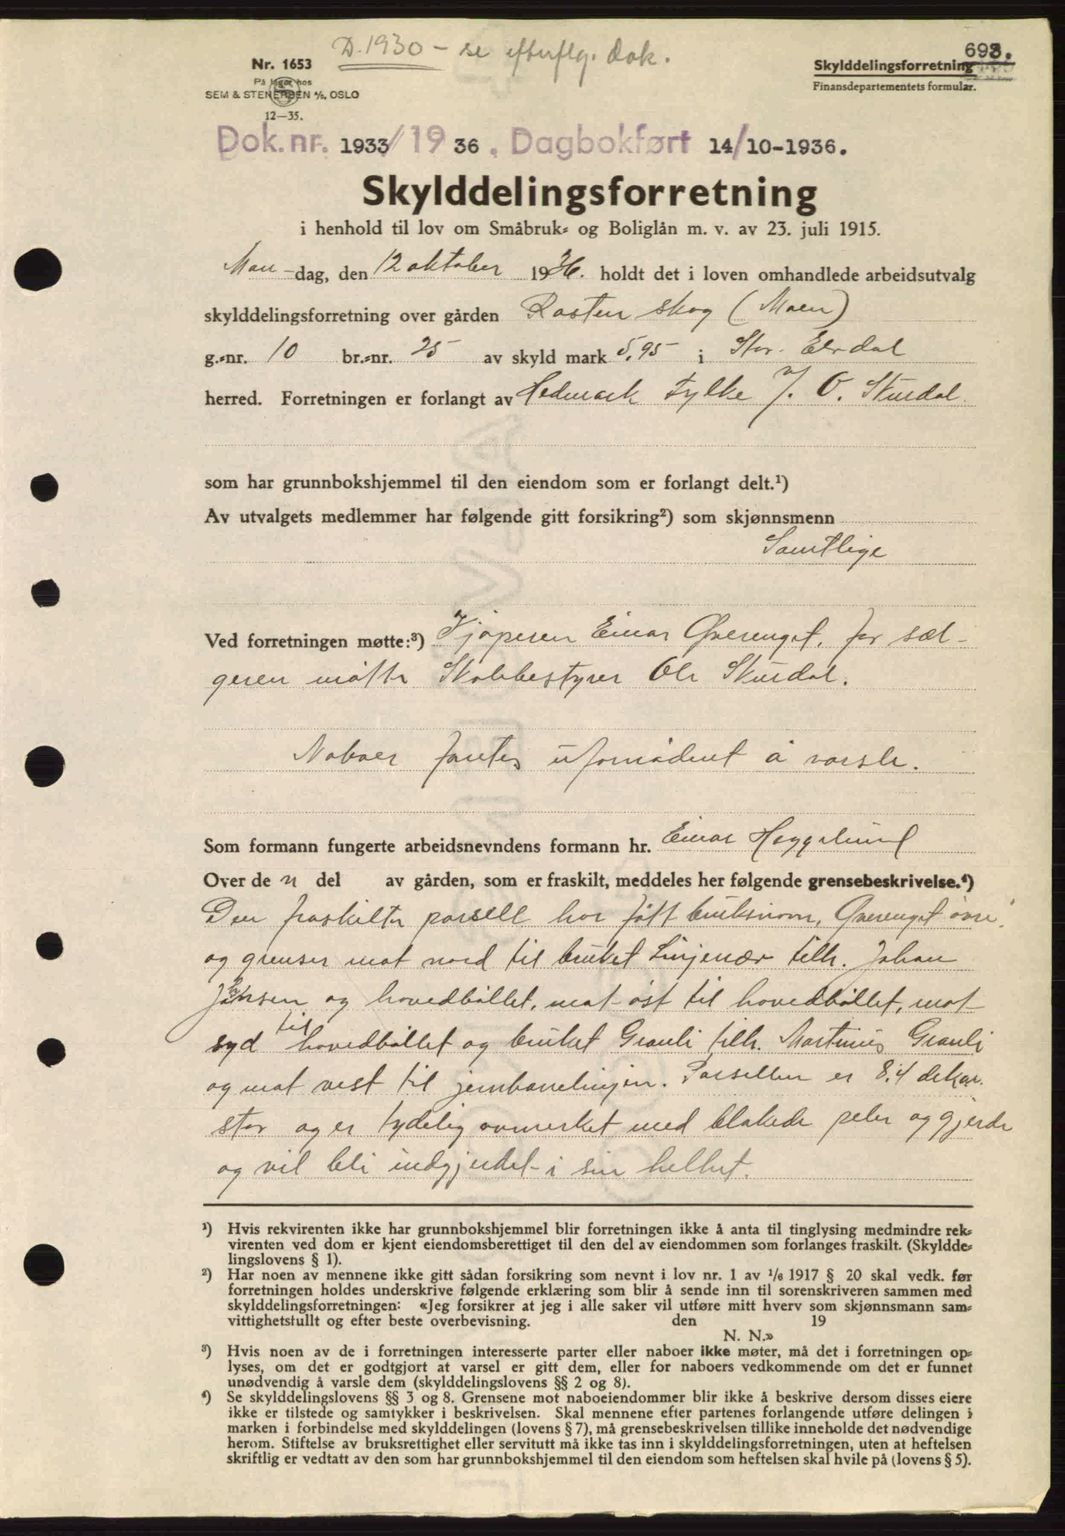 D. 1930 - se efterflg. Dok.
693.
Nr. 1653
På lager hos
SEM & STENERSEN A/S, OSLO
12—35.
Skylddelingsforretning
Finansdepartementets formular.
Dok. nr. 1933/1936. Dagbokført 14/10-1936.
Skylddelingsforretning
i henhold til lov om Småbruk- og Boliglån m. v. av 23. juli 1915.
Man-dag, den 12 oktober 1936. holdt det i loven omhandlede arbeidsutvalg
skylddelingsforretning over gården Rasten skog (Moen)
g.-nr. 10 br.-nr. 25 av skyld mark 5,95 i Stor-Elvdal
herred. Forretningen er forlangt av Hedmark fylke v/ O. Skurdal
som har grunnbokshjemmel til den eiendom som er forlangt delt.¹)
Av utvalgets medlemmer har følgende gitt forsikring²) som skjønnsmenn
Samtlige
Ved forretningen møtte:³) Kjøperen Einar Øverenget, for sæl-
geren møtte Skolebestyrer Ole Skurdal.
Naboer fantes ufornødent å varsle.
Som formann fungerte arbeidsnevndens formann hr. Einar Heggelund
Over de n del av gården, som er fraskilt, meddeles her følgende grensebeskrivelse.⁴)
Den fraskilte parsell har fått bruksnavn, Øverenget øvre,
og grenser mot nord til bruket Linjenær tilh. Johan
Jansen og hovedbøllet, mot øst til hovedbøllet, mot
syd til hovedbøllet og bruket Granli tilh. Martinius Granli
og mot vest til jernbanelinjen. Parsellen er 8,4 dekar.
stor og er tydelig avmerket med blekede peler og gjerde
og vil bli indgjerdet i sin helhet.
¹) Hvis rekvirenten ikke har grunnbokshjemmel blir forretningen ikke å anta til tinglysing medmindre rek-
virenten ved dom er kjent eiendomsberettiget til den del av eiendommen som forlanges fraskilt. (Skyldde-
lingslovens § 1).
²) Har noen av mennene ikke gitt sådan forsikring som nevnt i lov nr. 1 av 1/6 1917 § 20 skal vedk. før
forretningen holdes underskrive følgende erklæring som blir å sende inn til sorenskriveren sammen med
skylddelingsforretningen: «Jeg forsikrer at jeg i alle saker vil utføre mitt hverv som skjønnsmann sam-
vittighetsfullt og efter beste overbevisning. den 19
N. N.»
³) Hvis noen av de i forretningen interesserte parter eller naboer ikke møter, må det i forretningen op-
lyses, om det er godtgjort at varsel er gitt dem, eller for naboers vedkommende om det er funnet
unødvendig å varsle dem (skylddelingslovens §§ 2 og 8).
⁴) Se skylddelingslovens §§ 3 og 8. Grensene mot naboeiendommer blir ikke å beskrive dersom disses eiere
ikke er tilstede og samtykker i beskrivelsen. Skal mennene efter partenes forlangende utføre delingen i
marken i forbindelse med skylddelingen (lovens § 7), må grensebeskrivelsen tillike inneholde det nødvendige
herom. Stiftelse av bruksrettighet eller servitutt må ikke tas inn i skylddelingsforretningen, uten at heftelsen
skriftlig er vedtatt av den som har grunnbokshjemmel til den eiendom som heftelsen skal hvile på (lovens § 5).